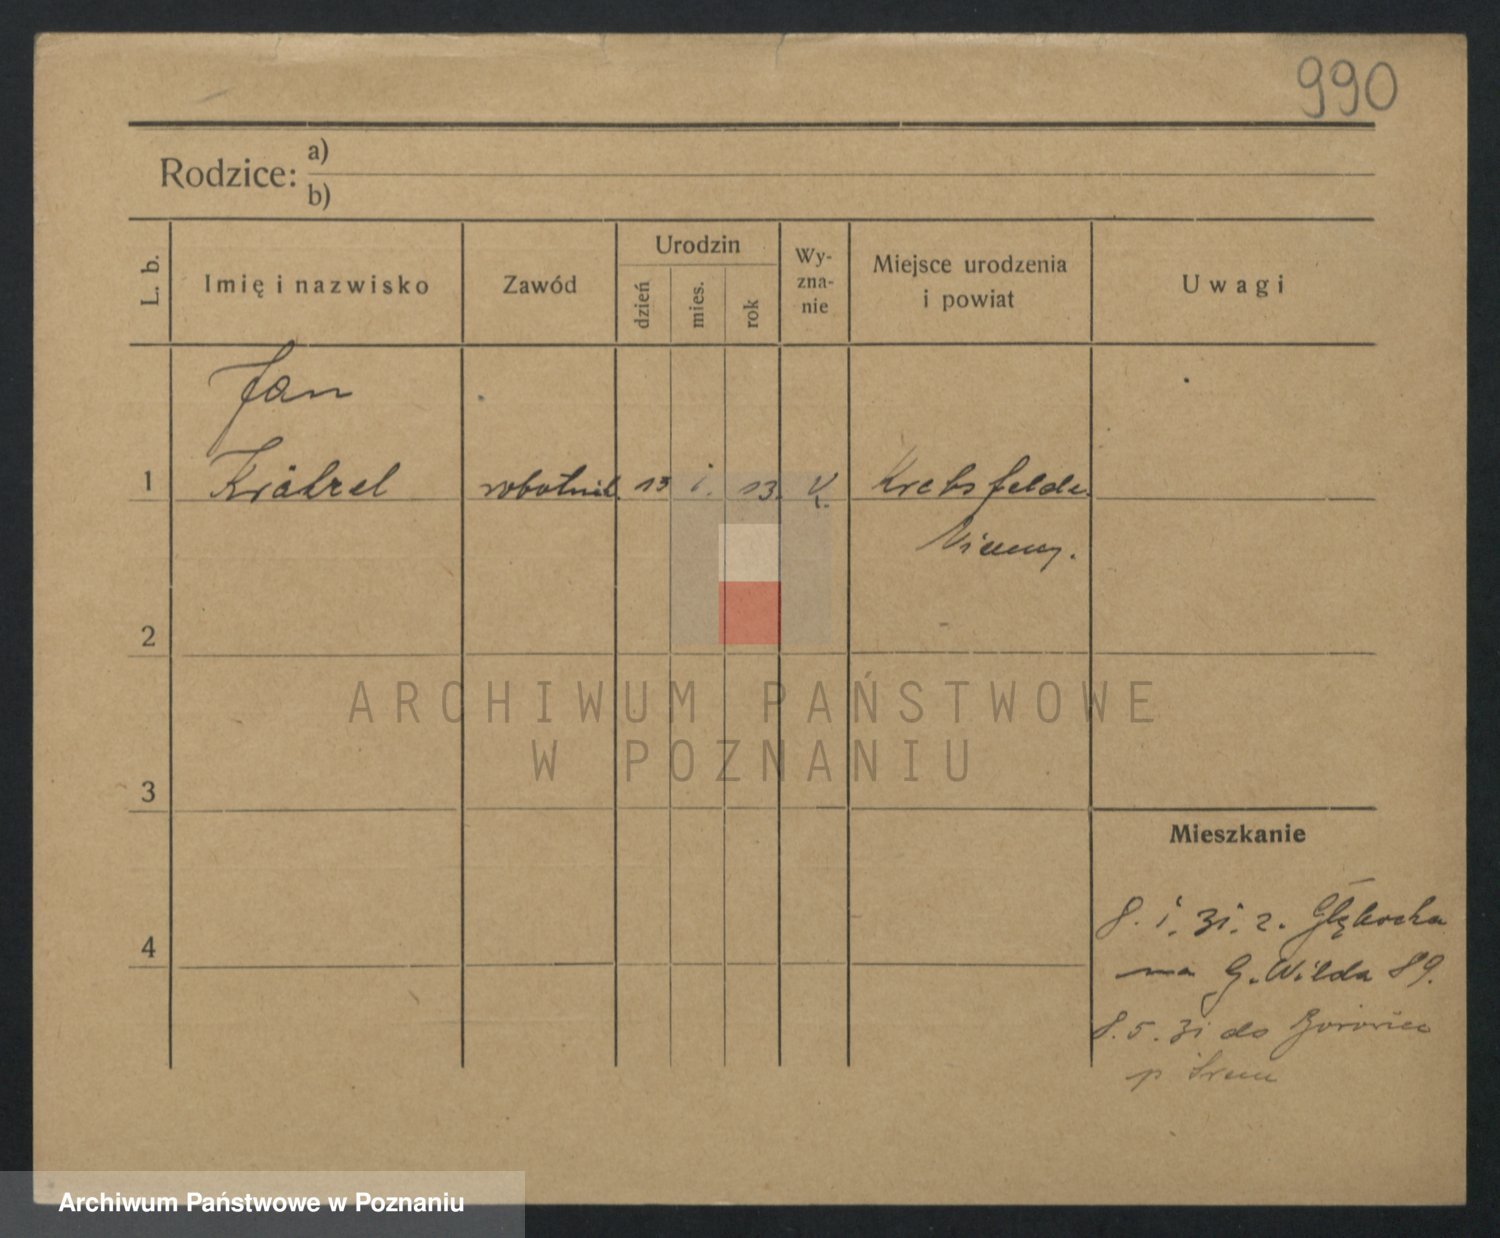 990
Rodzice: a)
b)
L. b.
Imię i nazwisko
Zawód
Urodzin
dzień
mies.
rok
Wy-
zna-
nie
Miejsce urodzenia
i powiat
Uwagi
Jan
1 Krätzel robotnik 13 i. 13. Krebsfelde
2
3
4
Mieszkanie
8. i. 31. z. Głęboka
na G. Wilda 89.
8. 5. 31 do
p Śrem
ARCHIWUM PAŃSTWOWE
W POZNANIU
Archiwum Państwowe w Poznaniu